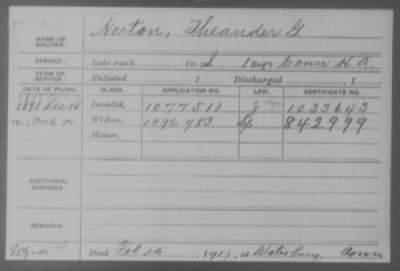 DEAD
NAME OF SOLDIER: Norton, Theander G.
SERVICE: Late rank, Co. I, 1 Reg't Conn H. A.
TERM OF SERVICE: Enlisted , 1 Discharged , 1
DATE OF FILING. CLASS. APPLICATION NO. LAW. CERTIFICATE NO.
1891 Dec 15 Invalid, 1077511 1033643
Widow, 1096983 842999
Minor,
ADDITIONAL SERVICES:
REMARKS:
Died Feb 26, 1917, at Waterbury, Conn